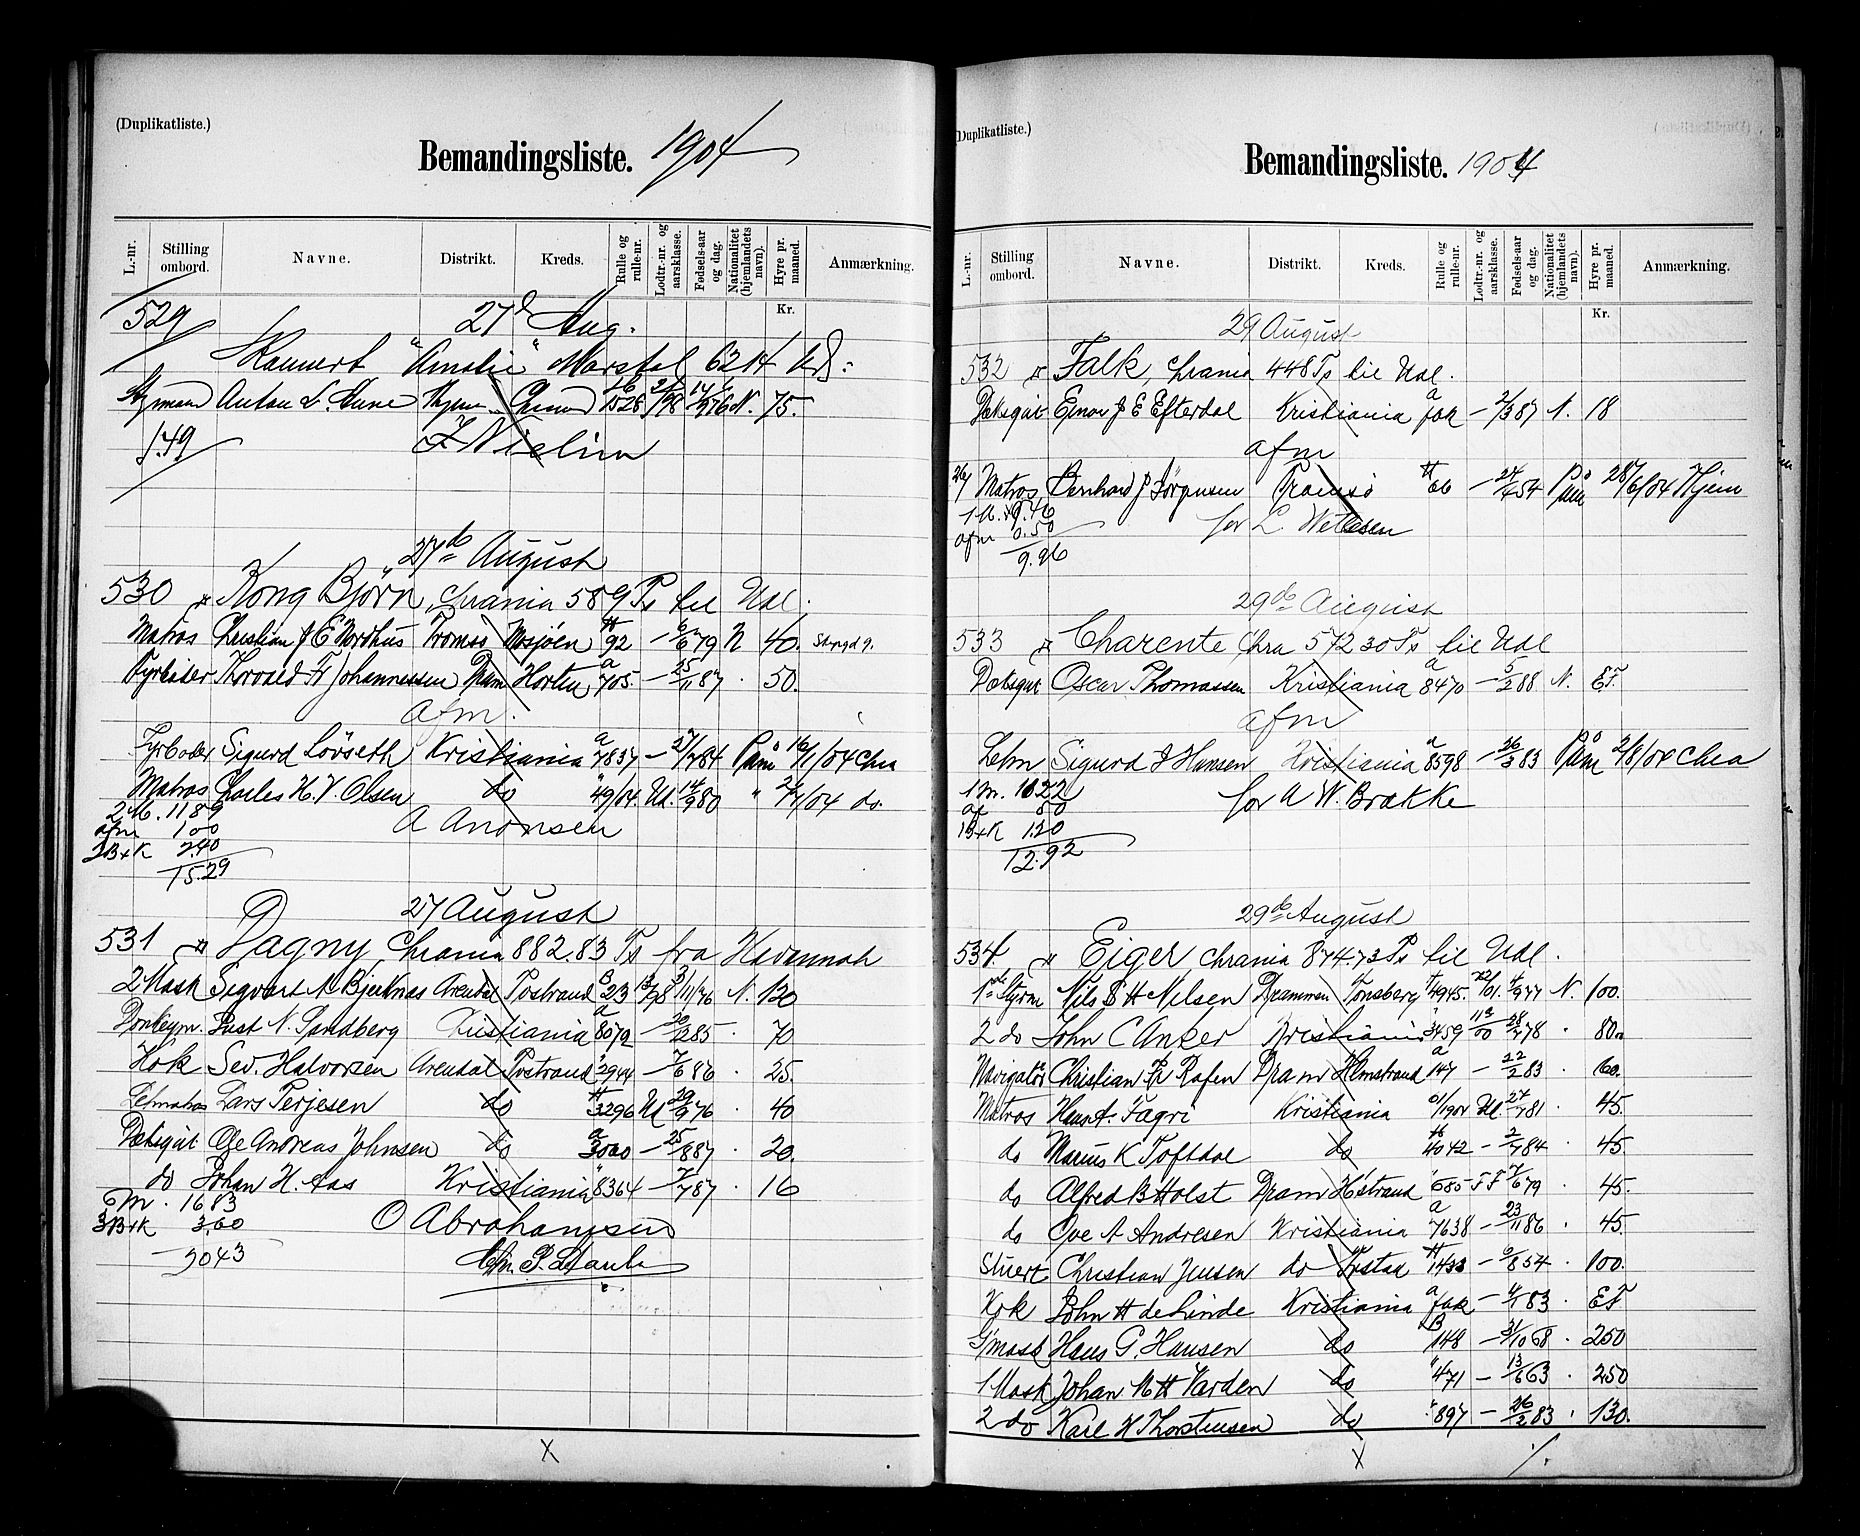 (Duplikatliste.)
Bemandingsliste. 1904
L.-nr. Stilling ombord. Navne. Distrikt. Kreds. Rulle og rulle-nr. Lodtr.-nr. og aarsklasse. Fødsels-aar og dag. Nationalitet (hjemlandets navn). Hyre pr. maaned. Anmærkning.
Kr.
529 27d Aug.
"Amalie" Marstal 62 14
Styrmand Anton L. 1528 N. 75.
1.49
27de August
530 Kong Bjørn, Chrania 589 Ts til Udl.
Matros Christian J E Nordhus Tromsö Mosjöen 92 — 6/6 79 N 40.
Fyrböder Thorvald Fr Johannessen Dram Horten a 705. — 25/11 87 . 50.
afm.
Fyrböder Sigurd Lövseth Kristiania a 7837 — 27/7 84 Paam 16/1/04 Chra
Matros Charles H. V. Olsen do 49/04. Ud. 14/9 80 " do.
2 M. 11 89
afm 1 00
2B+K 2.40
15.29
A Aronsen
27 August
531 Dagny, Chrania 882.83 Ts fra Havannah
2 Mask Sigvart A Bjerknas Arendal Postrand B 23 13/98 3/11/76 N. 120
Donkeym. Just N. Sandberg Kristiania a 8079 — 85 . 70
Kok Sev. Halvorsen Arendal Postrand 2944 — 7/6 86 . 25.
Letmatros Lars Terjesen do H 3296 Ud 29/9 76 . 40
Dæksgut Ole Andreas Johnsen do a 3000 — 25/8 87 . 20.
do Johan H. Aas Kristiania " 8364 — 7/7 87 . 16
M. 16 83
3B+K 3.60
2043
O Abrahamsen
(Duplikatliste.)
Bemandingsliste. 1904
L.-nr. Stilling ombord. Navne. Distrikt. Kreds. Rulle og rulle-nr. Lodtr.-nr. og aarsklasse. Fødsels-aar og dag. Nationalitet (hjemlandets navn). Hyre pr. maaned. Anmærkning.
Kr.
29 August
532 Falk, Chrania 448 Ts til Udl.
Dæksgut Einar J E Efterdal Kristiania a — 2/3 87 N. 18
afm
26/ Matros Bernhard J Jörgensen Tromsö H 66 — 27/4 54 Paam 28/6/04 Hjem
1 M. 9.46
afm 0.50
9.96
for L Wetlesen
29de August
533 Charente Chra 572 30 Ts til Udl
Dæksgut Oscar Thomassen Kristiania a 8470 — 5/2 88 N. EF.
afm
Letm Sigurd J Hansen Kristiania a 8598 — 26/3 83 Paam 2/8/04 Chra
1 M. 1022
af 50
1B+K 1.20
12.92
for A W. Brække
29de August
534 Eiger Chrania 874.73 Ts til Udl.
1ste Styrm Nils B H Nilsen Drammen Tonsberg H 4945. 72/01. 4/9 77 N. 100.
2 do John C Anker Kristiania 3459 113/00 28/7 78 . 80
Navigatör Christian Fr Rafen Dram Holmstrand a 147 — 22/2 83 . 60.
Matros Hans A. Fagri Kristiania 01/1904 Ud 27/7 81 . 45.
do Marius K Toftdal do H 4042 — 2/7 84 . 45.
do Alfred B Holst Dram Hstrand " 685 F F 7/6 79 . 45.
do Ove A Andresen Kristiania a 7638 — 23/11 86 . 45.
Stuert Christian Jensen do H 1433 — 6/8 54 . 100.
Kok John H de Linde Kristiania a — 4/1 83 . EF
1 Mask Hans G. Hansen do B 148 — 31/10 68 . 250
1 Mask Johan M H Varden do " 471 — 13/6 63 . 250
2 do Karl H Thorstensen do " 897 — 26/2 83 . 130.